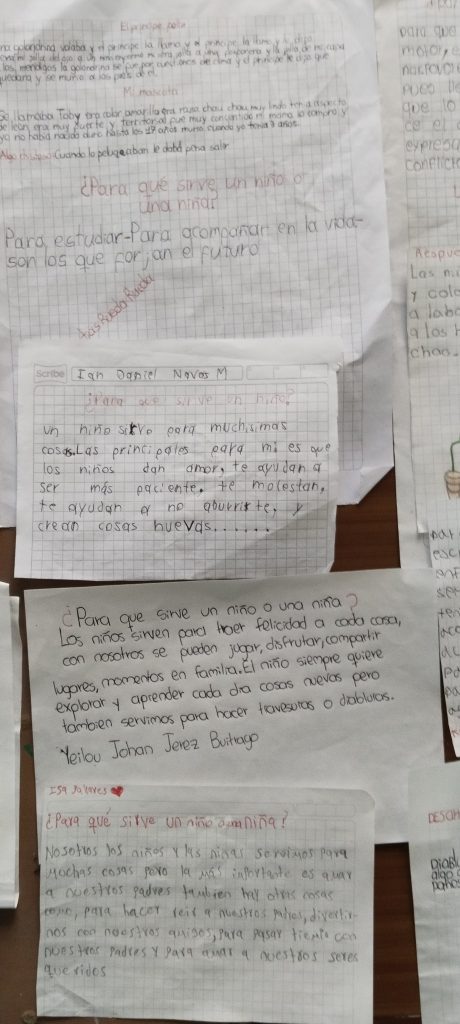 El principe feliz
na golondrina volaba y el principe la llama y el principe le dijo
los mendigos la golondrina se fue por
quedaria y se murio a los pies de el.
Mi mascota
Se llamaba Toby era color amarillo era raza chou chou muy lindo tenia aspecto
de leon era muy fuerte y territorial fue muy consentido mi mama lo compro y
yo no habia nacido duro hasta los 17 años murio cuando yo tenia 3 años.
Cuando lo peluqueaban le daba pena salir
¿Para qué sirve un niño o
una niña?
Para estudiar-Para acompañar en la vida-
son los que forjan el futuro
Rueda Rueda
Scribe Ian Daniel Navas M
¿Para que sirve un niño?
un niño sirve para muchisimas
cosas. Las principales para mi es que
los niños dan amor, te ayudan a
ser más paciente, te molestan,
te ayudan a no aburrirte, y
crean cosas nuevas......
¿Para que sirve un niño o una niña?
Los niños sirven para traer felicidad a cada casa,
con nosotros se pueden jugar, disfrutar, compartir
lugares, momentos en familia. El niño siempre quiere
explorar y aprender cada dia cosas nuevas pero
tambien servimos para hacer travesuras o diabluras.
Yeilou Johan Jerez Buitrago
Isa
¿Para qué sirve un niño o una niña?
Nosotros los niños y las niñas servimos para
muchas cosas pero la más importante es amar
a nuestros padres tambien hay otras cosas
como, para hacer reir a nuestros padres, divertir-
nos con nuestros amigos, para pasar tiempo con
nuestros padres y para amar a nuestros seres
queridos
para que
motor, e
poco
que lo
ce el
expresa
conflicto
Respue
Las ni
y colo
a labo
a los h
chan.